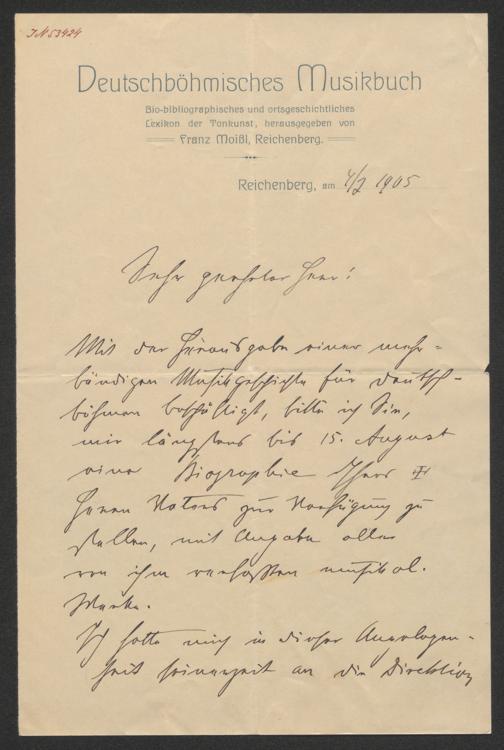 JN 53424
Deutschböhmisches Musikbuch
Bio-bibliographisches und ortsgeschichtliches
Lexikon der Tonkunst, herausgegeben von
Franz Moißl, Reichenberg.
Reichenberg, am 4/7 1905
Sehr geehrter Herr!
Mit der Herausgabe einer mehr-
bändigen Musikgeschichte für Deutsch-
böhmen beschäftigt, bitte ich Sie,
mir längstens bis 15. August
eine Biographie Ihres ‡
Herrn Vaters zur Verfügung zu
stellen, mit Angabe aller
von ihm verfassten musikal.
Werke.
Ich hatte mich in dieser Angelegen-
heit seinerzeit an die Direktion